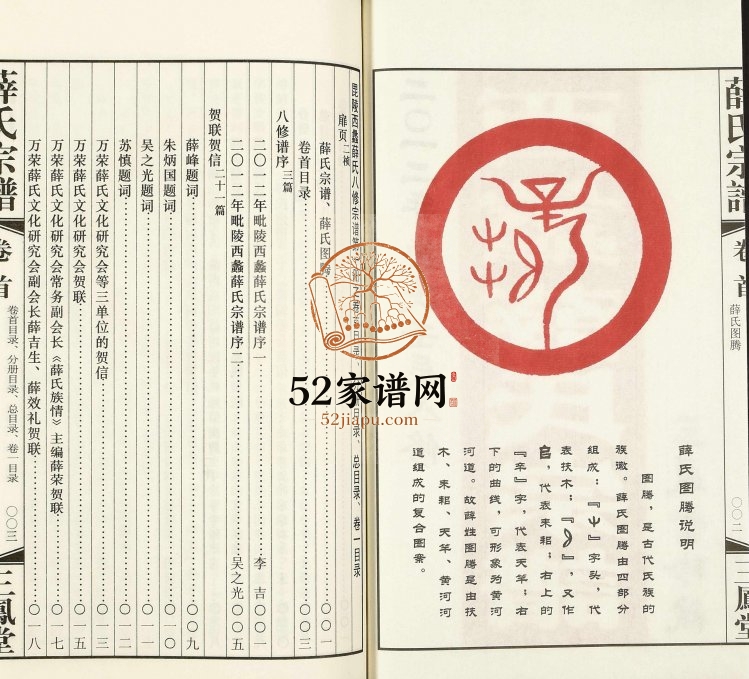 薛氏宗譜
卷首
薛氏图腾
〇〇二
三鳳堂
薛氏图腾说明
图腾，是古代氏族的
族徽。薛氏图腾由四部分
组成：『屮』字头，代
表扶木；『
』，又作
㠯，代表耒耜；右上的
『辛』字，代表天竿；右
下的曲线，可形象为黄河
河道。故薛姓图腾是由扶
木、耒耜、天竿、黄河河
道组成的复合图案。
薛氏宗譜
卷首
卷首目录、分册目录、总目录、卷一目录
〇〇三
三鳳堂
毘陵西蠡薛氏八修宗谱
之卷首目录
总目录、卷一目录
扉页二帧
薛氏宗谱、薛氏图腾……〇〇一
卷首目录……〇〇三
八修谱序三篇
二〇一二年毗陵西蠡薛氏宗谱序一……李 吉〇〇一
二〇一二年毗陵西蠡薛氏宗谱序二……吴之光〇〇五
贺联贺信二十一篇
薛峰题词……〇〇九
朱炳国题词……〇一〇
吴之光题词……〇一一
苏慎题词……〇一二
万荣薛氏文化研究会等三单位的贺信……〇一三
万荣薛氏文化研究会贺联……〇一五
万荣薛氏文化研究会常务副会长《薛氏族情》主编薛荣贺联……〇一七
万荣薛氏文化研究会副会长薛吉生、薛效礼贺联……〇一八
52家谱网
52jiapu.com